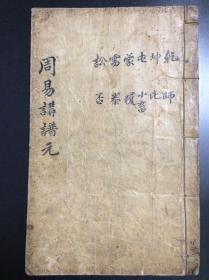 乾 師
坤 比
屯 小畜
蒙 履
需 泰
訟 否
周易講譜元